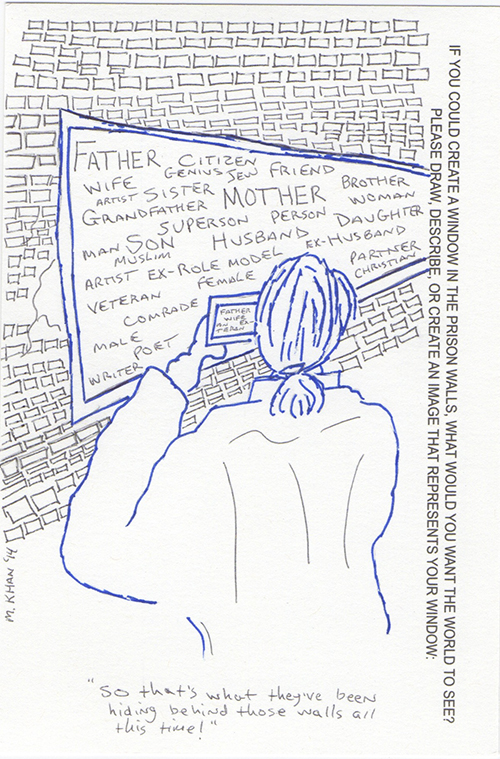 IF YOU COULD CREATE A WINDOW IN THE PRISON WALLS, WHAT WOULD YOU WANT THE WORLD TO SEE?
PLEASE DRAW, DESCRIBE, OR CREATE AN IMAGE THAT REPRESENTS YOUR WINDOW:
FATHER CITIZEN
WIFE GENIUS JEW FRIEND
ARTIST SISTER MOTHER BROTHER
GRANDFATHER WOMAN
SUPERSON PERSON DAUGHTER
MAN SON HUSBAND EX-HUSBAND
MUSLIM PARTNER
ARTIST EX-ROLE MODEL CHRISTIAN
VETERAN FEMALE
COMRADE
MALE POET
WRITER
FATHER
WIFE
M. KHAN '14
"So that's what they've been
hiding behind those walls all
this time!"